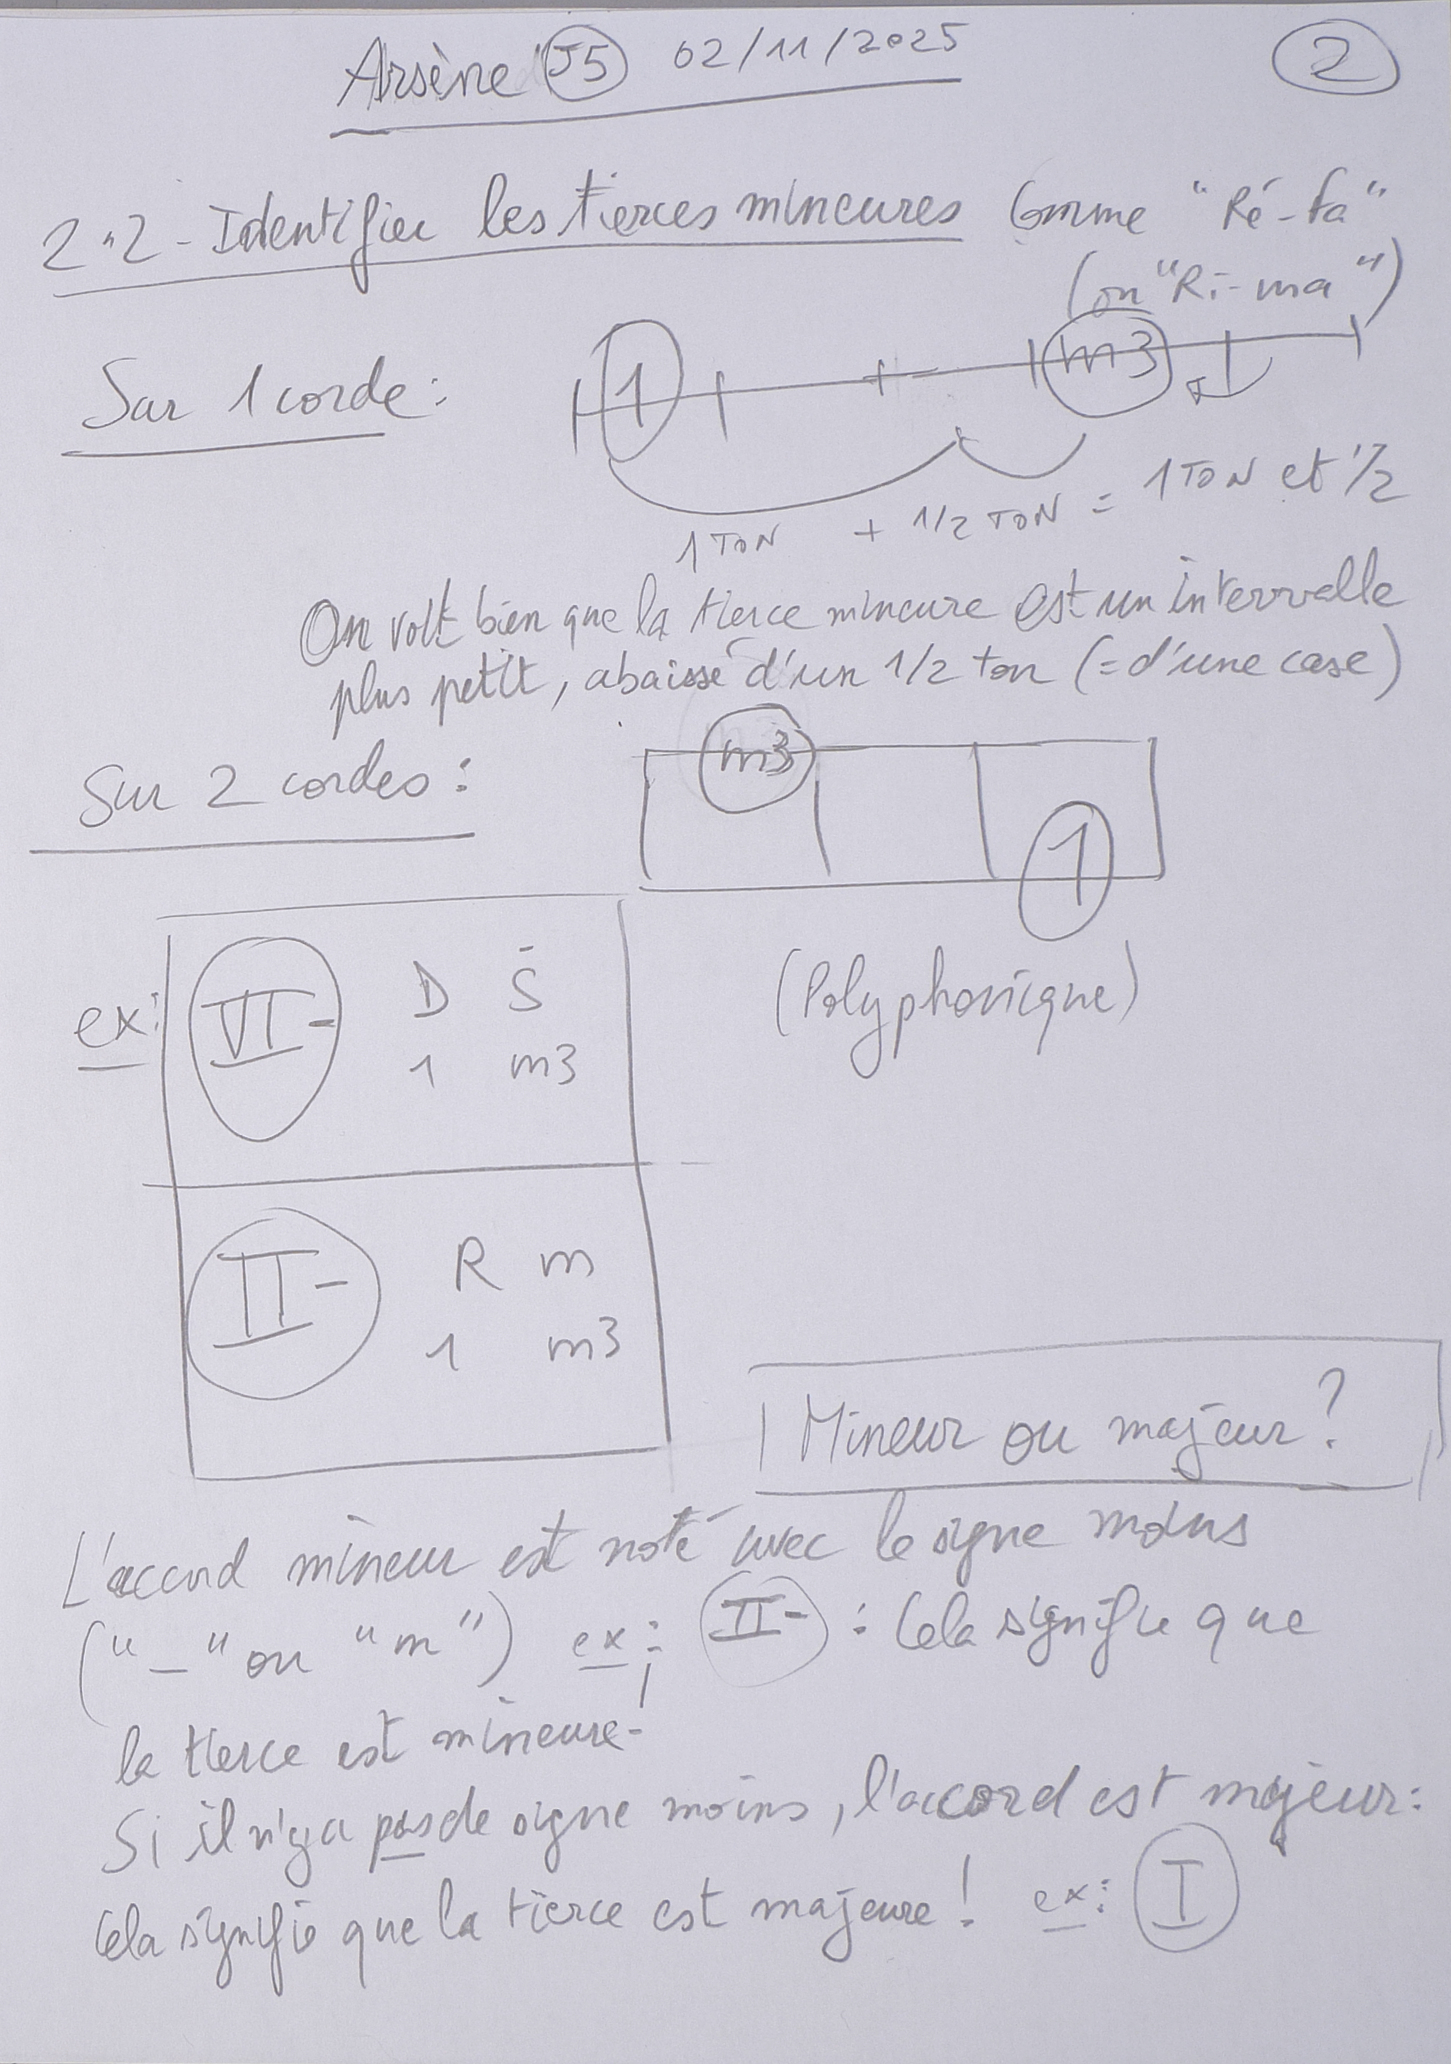 Arsène J5 02/11/2025
2
2.2 - Identifier les tierces mineures comme "Ré-fa"
(ou "Ri-ma")
Sur 1 corde :
1 m3
1 TON + 1/2 TON = 1 TON et 1/2
On voit bien que la tierce mineure est un intervalle
plus petit, abaissé d'un 1/2 ton (= d'une case)
Sur 2 cordes :
m3
1
(Polyphonique)
ex: VI- D S
1 m3
II- R m
1 m3
Mineur ou majeur ?
L'accord mineur est noté avec le signe moins
("-" ou "m") ex : II- : Cela signifie que
la tierce est mineure !
Si il n'y a pas de signe moins, l'accord est majeur :
Cela signifie que la tierce est majeure ! ex : I